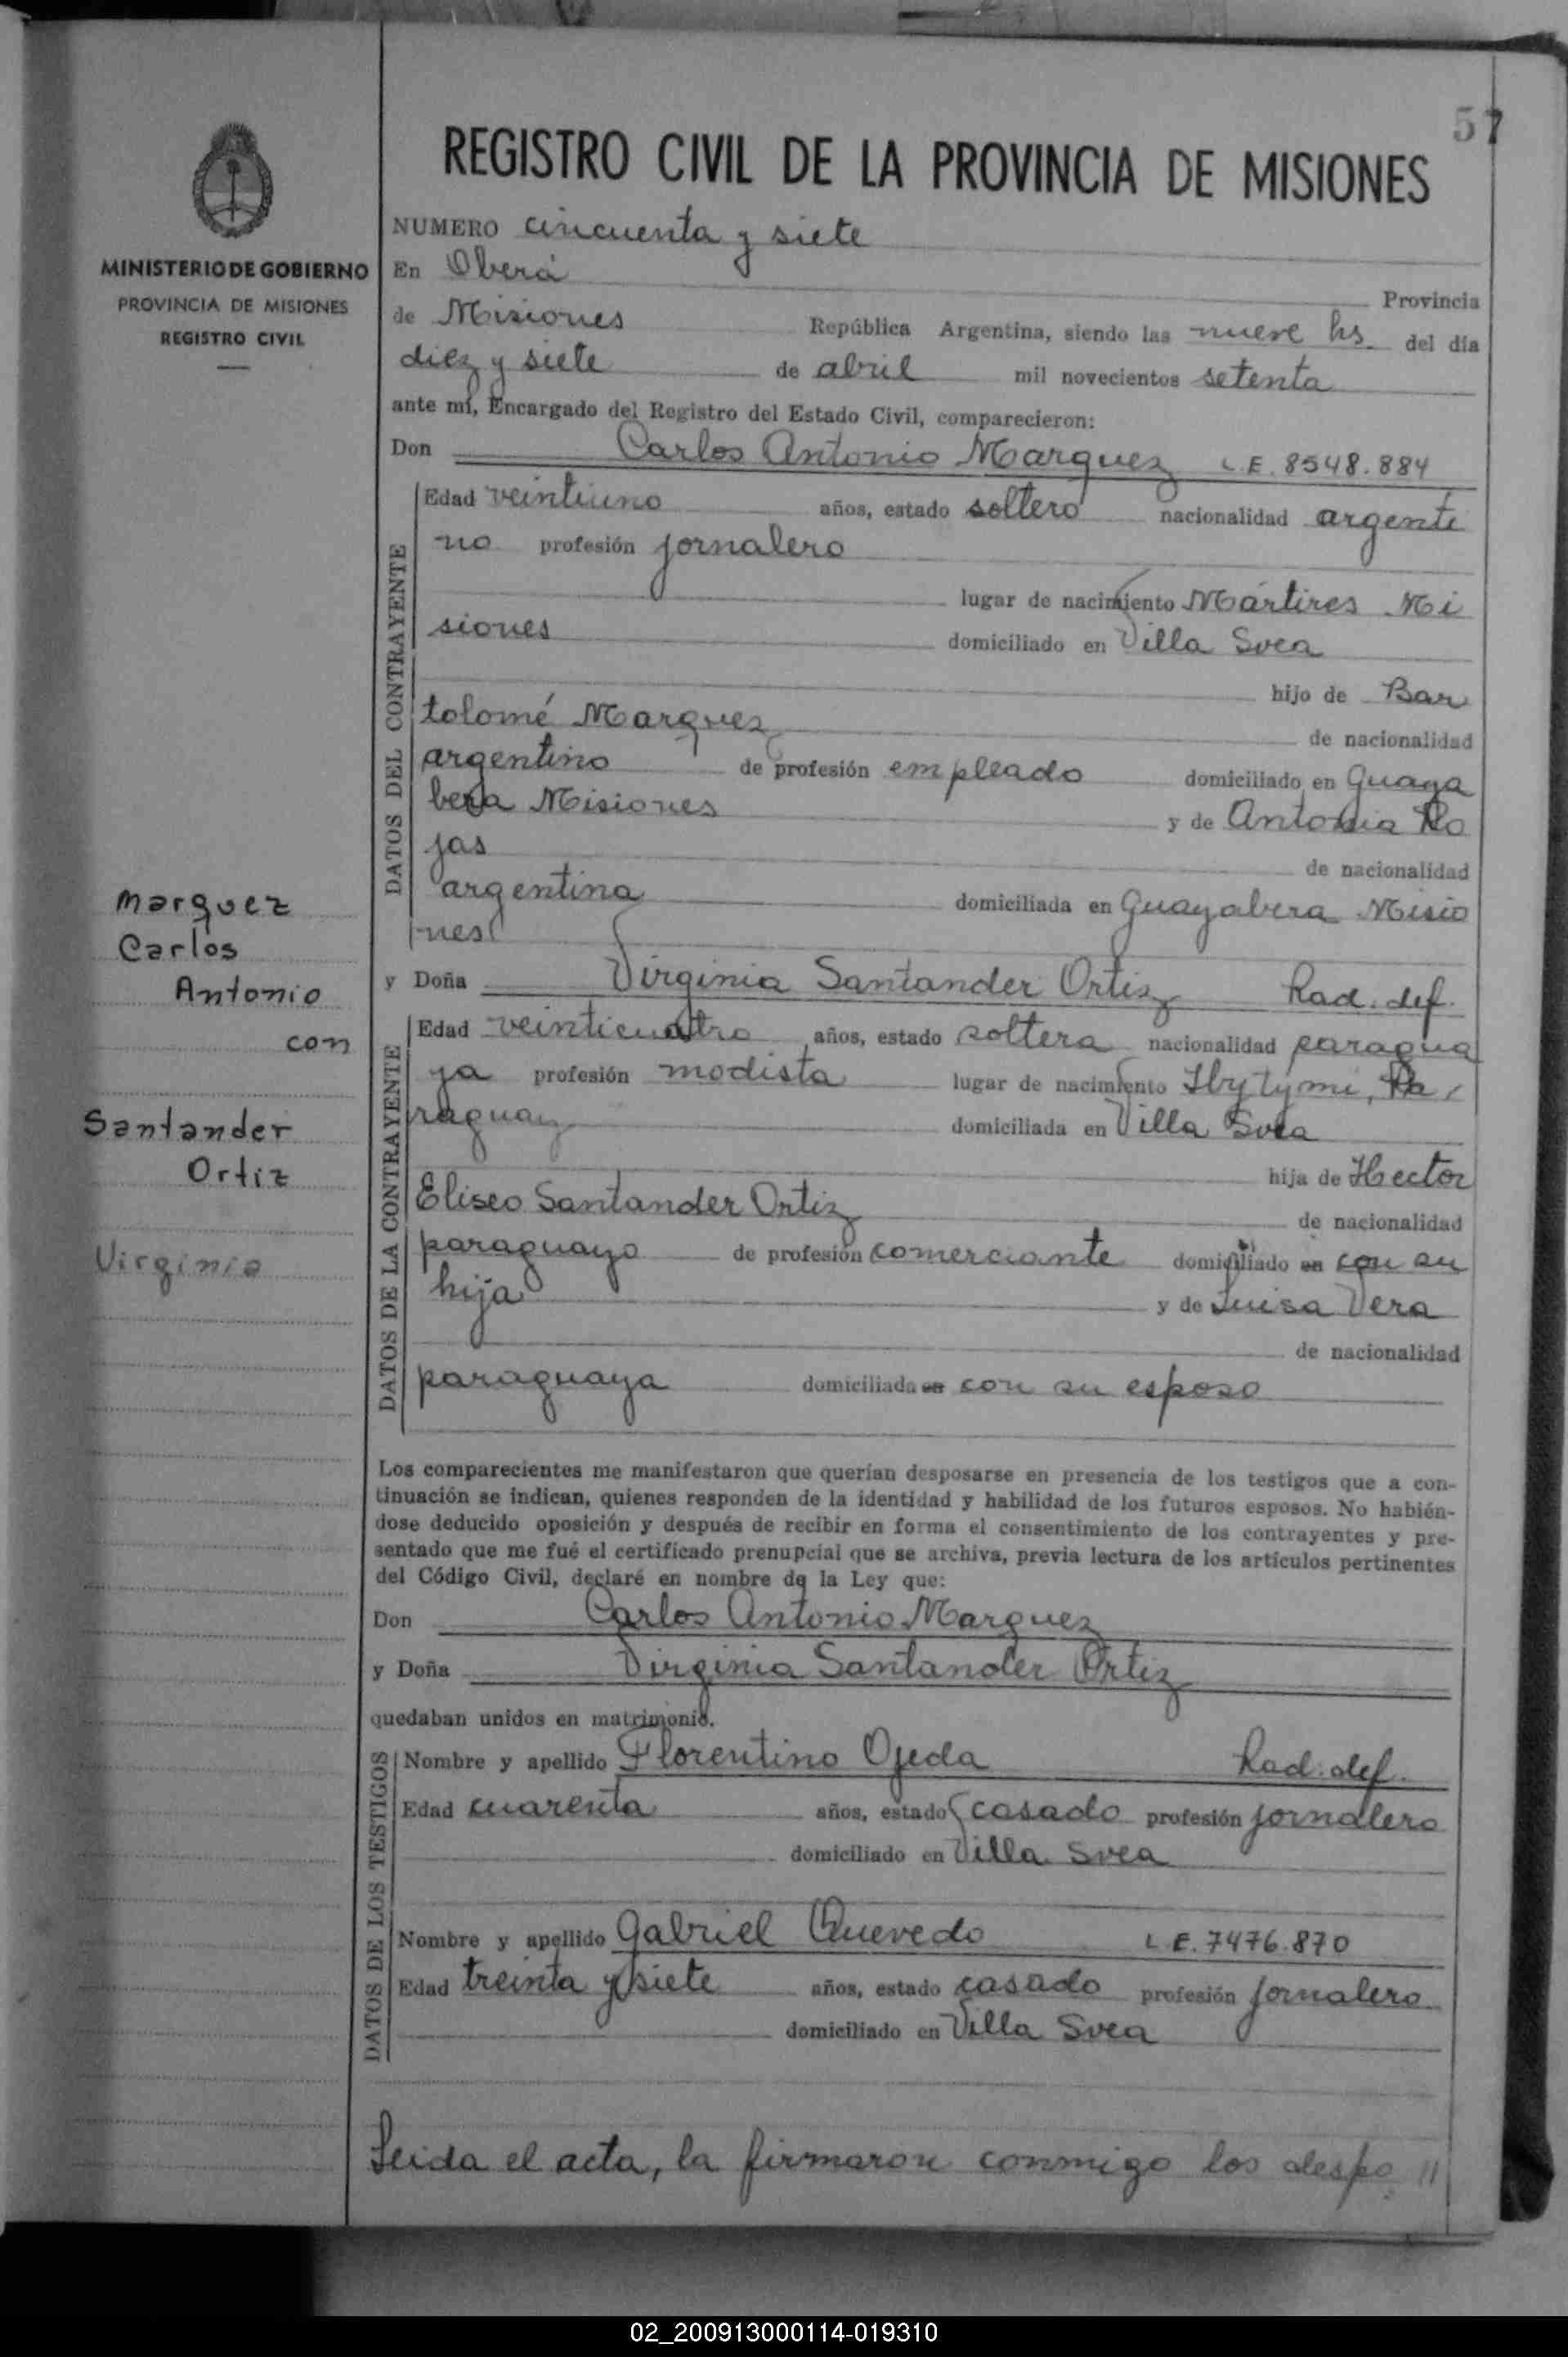 57
REGISTRO CIVIL DE LA PROVINCIA DE MISIONES
MINISTERIO DE GOBIERNO
PROVINCIA DE MISIONES
REGISTRO CIVIL
Marquez
Carlos
Antonio
con
Santander
Ortiz
Virginia
NUMERO cincuenta y siete
En Oberá Provincia
de Misiones República Argentina, siendo las nueve hs. del día
diez y siete de abril mil novecientos setenta
ante mí, Encargado del Registro del Estado Civil, comparecieron:
Don Carlos Antonio Marquez L.E. 8548.884
DATOS DEL CONTRAYENTE
Edad veintiuno años, estado soltero nacionalidad argenti
no profesión jornalero
lugar de nacimiento Mártires Mi
siones domiciliado en Villa Svea
hijo de Bar
tolomé Marquez de nacionalidad
argentino de profesión empleado domiciliado en Guaya
bera Misiones y de Antonia Ro
jas de nacionalidad
argentina domiciliada en Guayabera Misio
nes
y Doña Virginia Santander Ortiz Rad. def.
DATOS DE LA CONTRAYENTE
Edad veinticuatro años, estado soltera nacionalidad paragua
ya profesión modista lugar de nacimiento Ybytymi, Pa
raguay domiciliada en Villa Svea
hija de Hector
Eliseo Santander Ortiz de nacionalidad
paraguayo de profesión comerciante domiciliado en con su
hija y de Luisa Vera
de nacionalidad
paraguaya domiciliada en con su esposo
Los comparecientes me manifestaron que querían desposarse en presencia de los testigos que a con-
tinuación se indican, quienes responden de la identidad y habilidad de los futuros esposos. No habién-
dose deducido oposición y después de recibir en forma el consentimiento de los contrayentes y pre-
sentado que me fué el certificado prenupcial que se archiva, previa lectura de los artículos pertinentes
del Código Civil, declaré en nombre de la Ley que:
Don Carlos Antonio Marquez
y Doña Virginia Santander Ortiz
quedaban unidos en matrimonio.
DATOS DE LOS TESTIGOS
Nombre y apellido Florentino Ojeda Rad. def.
Edad cuarenta años, estado casado profesión jornalero
domiciliado en Villa Svea
Nombre y apellido Gabriel Quevedo L.E. 7476.870
Edad treinta y siete años, estado casado profesión jornalero
domiciliado en Villa Svea
Leida el acta, la firmaron conmigo los despo //
02_200913000114-019310